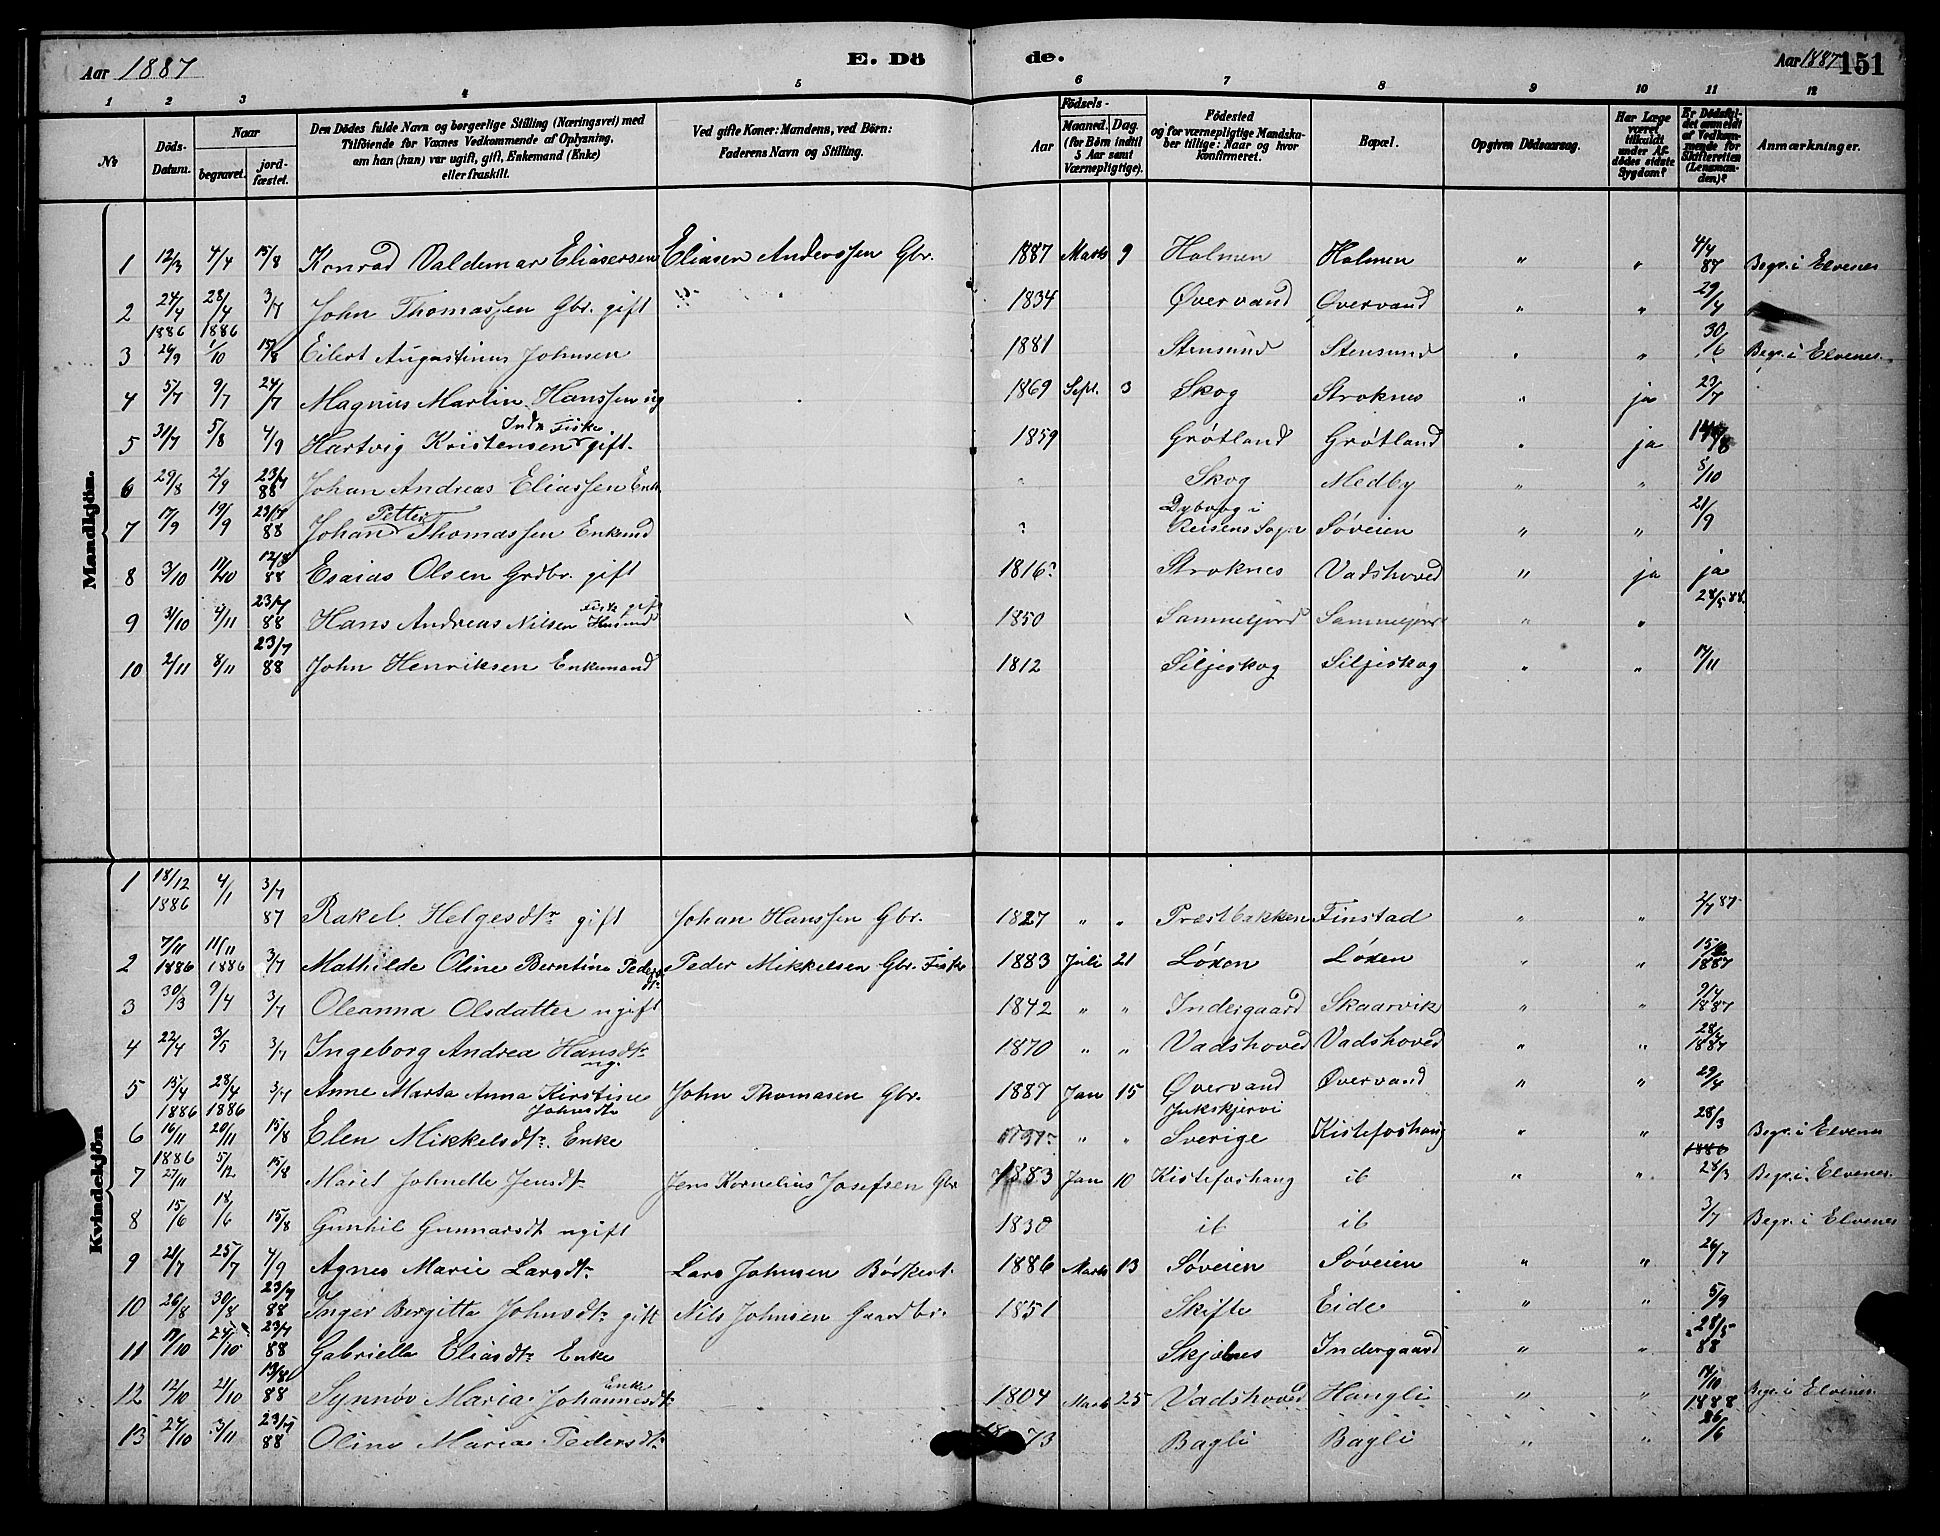 Aar 1887 E. Dö de. Aar 1887 151
1 2 3 4 5 6 7 8 9 10 11 12
№ Döds-Datum. Naar begravet. jordfæstet. Den Dödes fulde Navn og borgerlige Stilling (Næringsvei) med Tilföiende for Voxnes Vedkommende af Oplysning, om han (hun) var ugift, gift, Enkemand (Enke) eller fraskilt. Ved gifte Koner: Mandens, ved Börn: Faderens Navn og Stilling. Födsels- Aar Maaned. Dag. (for Börn indtil 5 Aar samt Værnepligtige). Födested og for værnepligtige Mandskaber tillige: Naar og hvor konfirmeret. Bopæl. Opgiven Dödsaarsag. Har Læge været tilkaldt under Afdödes sidste Sygdom? Er Dödsfaldet anmeldt af Vedkommende for Skifteretten (Lensmanden)? Anmærkninger.
Mandkjön.
1 12/3 4/4 15/8 Konrad Valdemar Eliasersen Eliasen Anderssen Gbr. 1887 Marts 9 Holmen Holmen " " 4/4 87 Begr. i Elvenes
2 24/4 28/4 3/7 John Thomassen Gbr. gift 1834 Øvervand Øvervand " " 29/4
3 1886 26/9 1886 1/10 15/8 Eilert Augustinus Johnsen 1881 Stensund Stensund " " 30/6 Begr. i Elvenes.
4 5/7 9/7 24/7 Magnus Martin Hanssen ug 1869 Sept. 3 Skog Stroknes " ja 23/7
5 31/7 5/8 4/9 Hartvig Kristensen Inds Fisker gift. 1859 Grøtland Grøtland " ja
6 29/8 2/9 23/7 88 Johan Andreas Eliassen Enk. Skog Medby " " 5/10
7 17/9 19/9 23/7 88 Johan Petter Thomassen Enkemd Dybvog i Reisens Sogn Søveien " " 21/9
8 3/10 11/10 12/8 88 Esaias Olsen Grdbr. gift 1816? Stroknes Vadshoved " ja ja
9 31/10 4/11 23/7 88 Hans Andreas Nilsen Fisk gift Husmd 1850 Sammeljord Sammeljord " " 28/5 88.
10 2/11 8/11 23/7 88 John Henriksen Enkemand 1812 Siljeskog Siljeskog " " 17/11
Kvindekjön
1 18/12 1886 4/1 3/7 87 Rakel Helgesdtr gift Johan Hanssen Gbr. 1827 " " Præstbakken Finstad " " 2/7 87
2 7/11 1886 11/11 1886 3/7 Mathilde Oline Berntine Pedersdtr Peder Mikkelsen Gbr. Fisker 1883 Juli 21 Løxen Løxen " " 1887
3 30/3 9/4 3/7 Oleanna Olsdatter ugift 1842 " " Indergaard Skaarvik " " 9/4 1887
4 22/4 3/5 3/7 Ingeborg Andrea Hansdtr ug. 1870 " " Vadshoved Vadshoved " " 28/4 1887
5 15/4 28/4 3/7 Anne Marta Anna Kirstine Johnsdtr John Thomasen Gbr. 1887 Jan 15 Øvervand Øvervand " " 29/4
6 1886 16/11 1886 20/11 15/8 Elen Mikkelsdtr. Enke " " Jukskjervi Sverige Kistefoshaug " " 28/3 Begr. i Elvenes
7 1886 27/11 5/12 15/8 Maret Johnette Jensdtr Jens Kornelius Josefsen Gbr 1883 Jan 10 Kistefoshaug ib " " 1886 28/3 Begr. i Elvenes.
8 15/6 18/6 15/8 Gunhil Gunnarsdt ugift 1830 ib ib 3/7 Begr. i Elvenes
9 21/7 25/7 4/9 Agnes Marie Larsdtr Lars Johnsen Bödkerst. 1886 Marts 13 Søveien Søveien " " 26/7
10 26/8 30/8 23/7 88 Inger Bergitte Johnsdtr gift Nils Johnsen Gaardbr. 1851 Skifte Eide " " 5/9
11 17/10 24/10 23/7 88 Gabriella Eliasdtr Enke Skjølnes Indergaard " " 28/5 88
12 12/10 21/10 13/8 88 Synnöv Maria Johannesdtr Enke 1804 Marts 25 Vadshoved Hangli " " 17/10 1888 Begr. i Elvenes.
13 24/10 3/11 23/7 88 Oline Maria Pedersdtr 73 Bagli Bagli " " 26/6